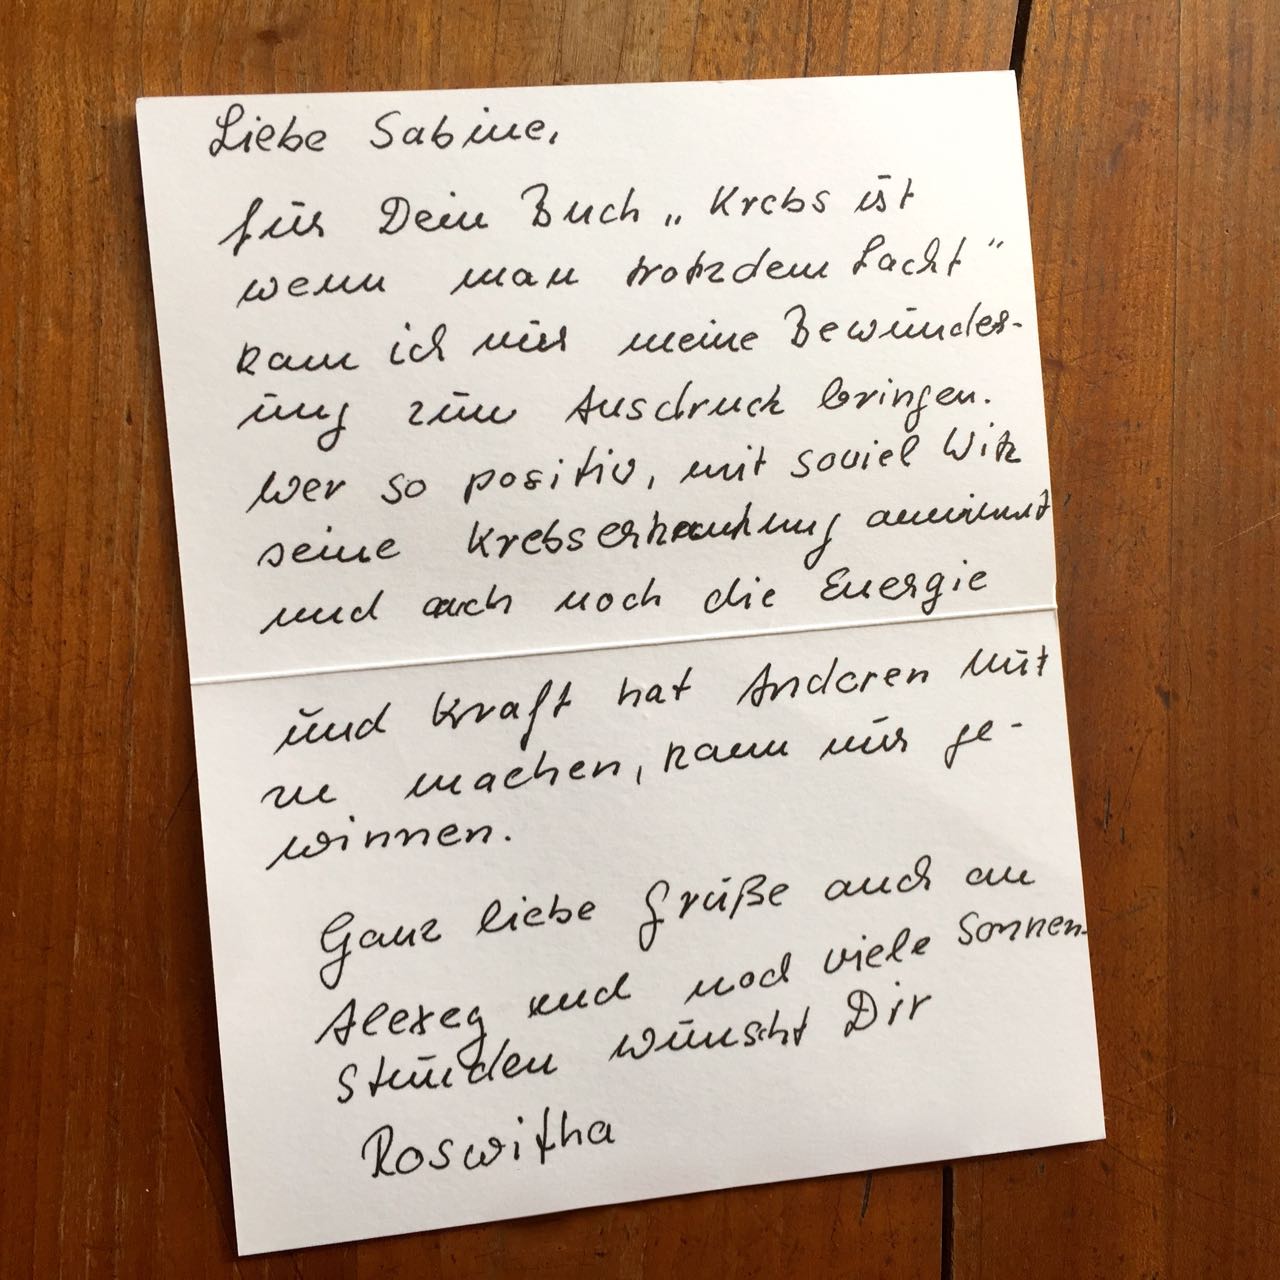 Liebe Sabine,
für Dein Buch „Krebs ist
wenn man trotzdem lacht"
kann ich nur meine Bewunder-
ung zum Ausdruck bringen.
Wer so positiv, mit soviel Witz
seine Krebserkrankung annimmt
und auch noch die Energie
und Kraft hat Anderen Mut
zu machen, kann nur ge-
winnen.
Ganz liebe Grüße auch an
Alexey und noch viele Sonnen-
stunden wünscht Dir
Roswitha